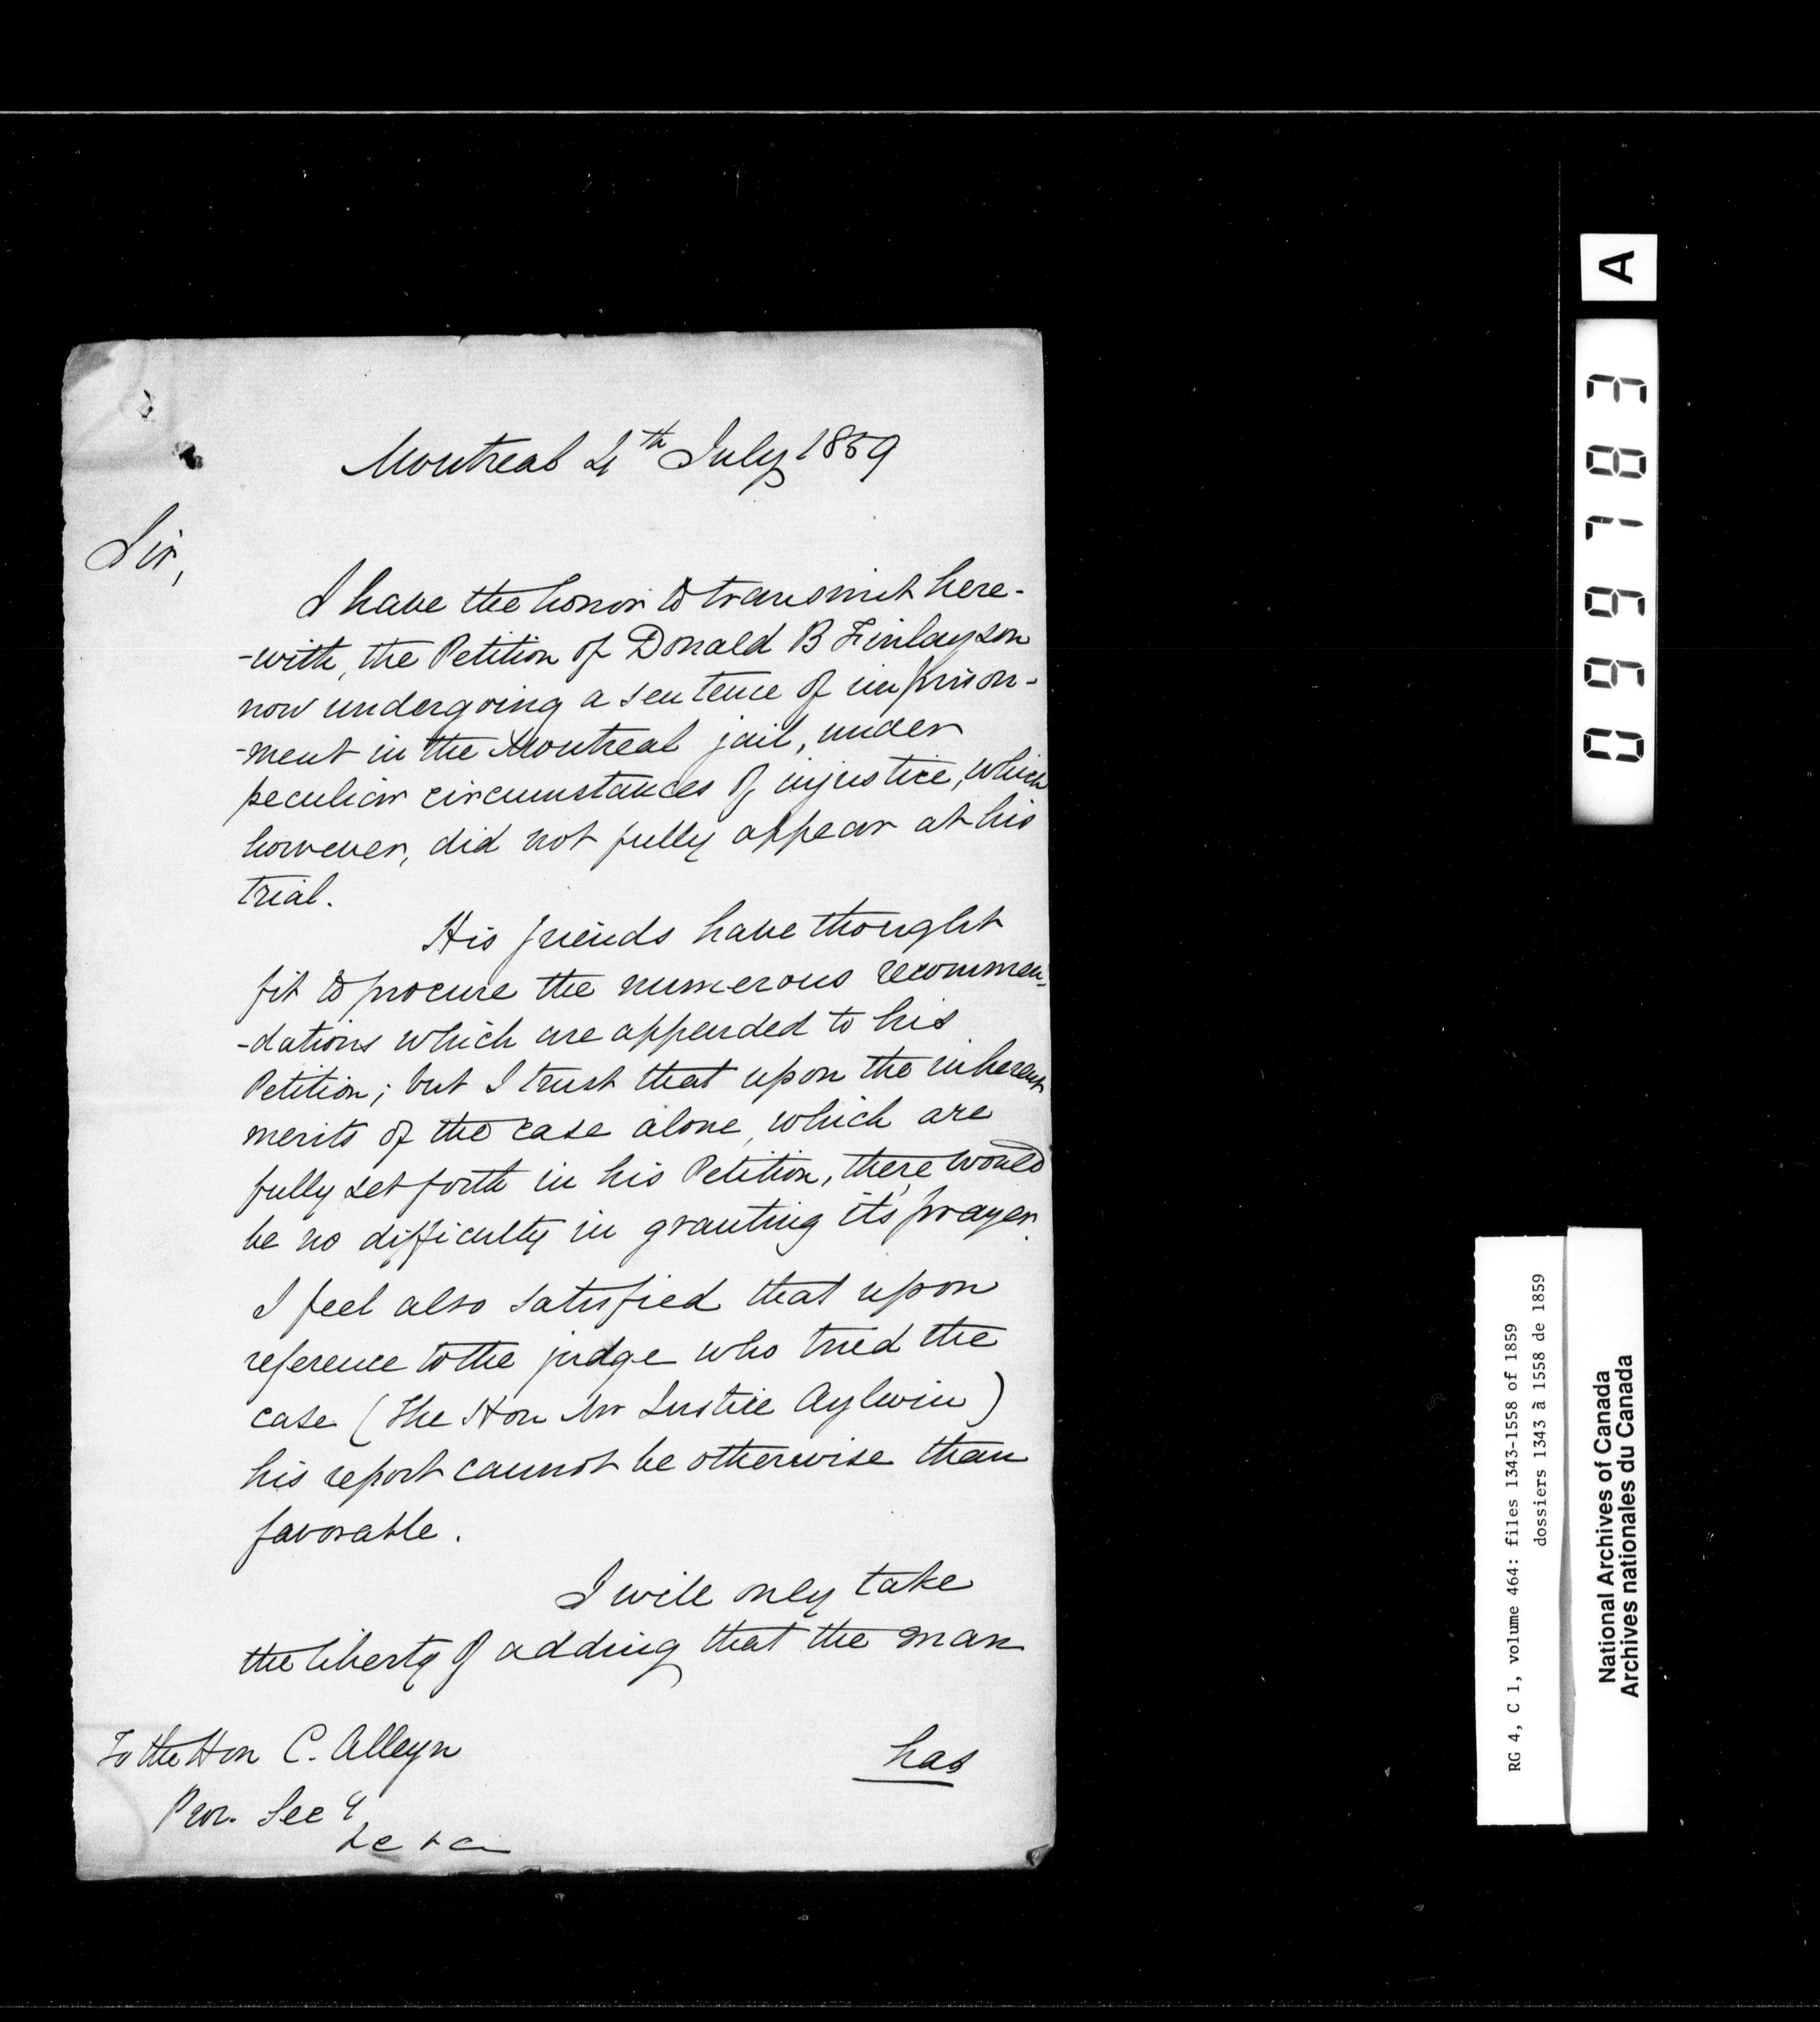 Montreal 4th July 1859
Sir,
I have the honor to transmit here-
-with, the Petition of Donald B Finlayson
now undergoing a sentence of imprison-
-ment in the Montreal jail, under
peculiar circumstances of injustice, which
however, did not fully appear at his
trial.
His friends have thought
fit to procure the numerous recommen-
-dations which are appended to his
Petition; but I trust that upon the inherent
merits of the case alone, which are
fully set forth in his Petition, there would
be no difficulty in granting its prayer.
I feel also satisfied that upon
reference to the judge who tried the
case (The Hon Mr Justice Aylwin)
his report cannot be otherwise than
favorable.
I will only take
the liberty of adding that the man
has
To the Hon C. Alleyn
Prov. Secy
&c &c
A
099783
RG 4, C 1, volume 464: files 1343-1558 of 1859
dossiers 1343 à 1558 de 1859
National Archives of Canada
Archives nationales du Canada